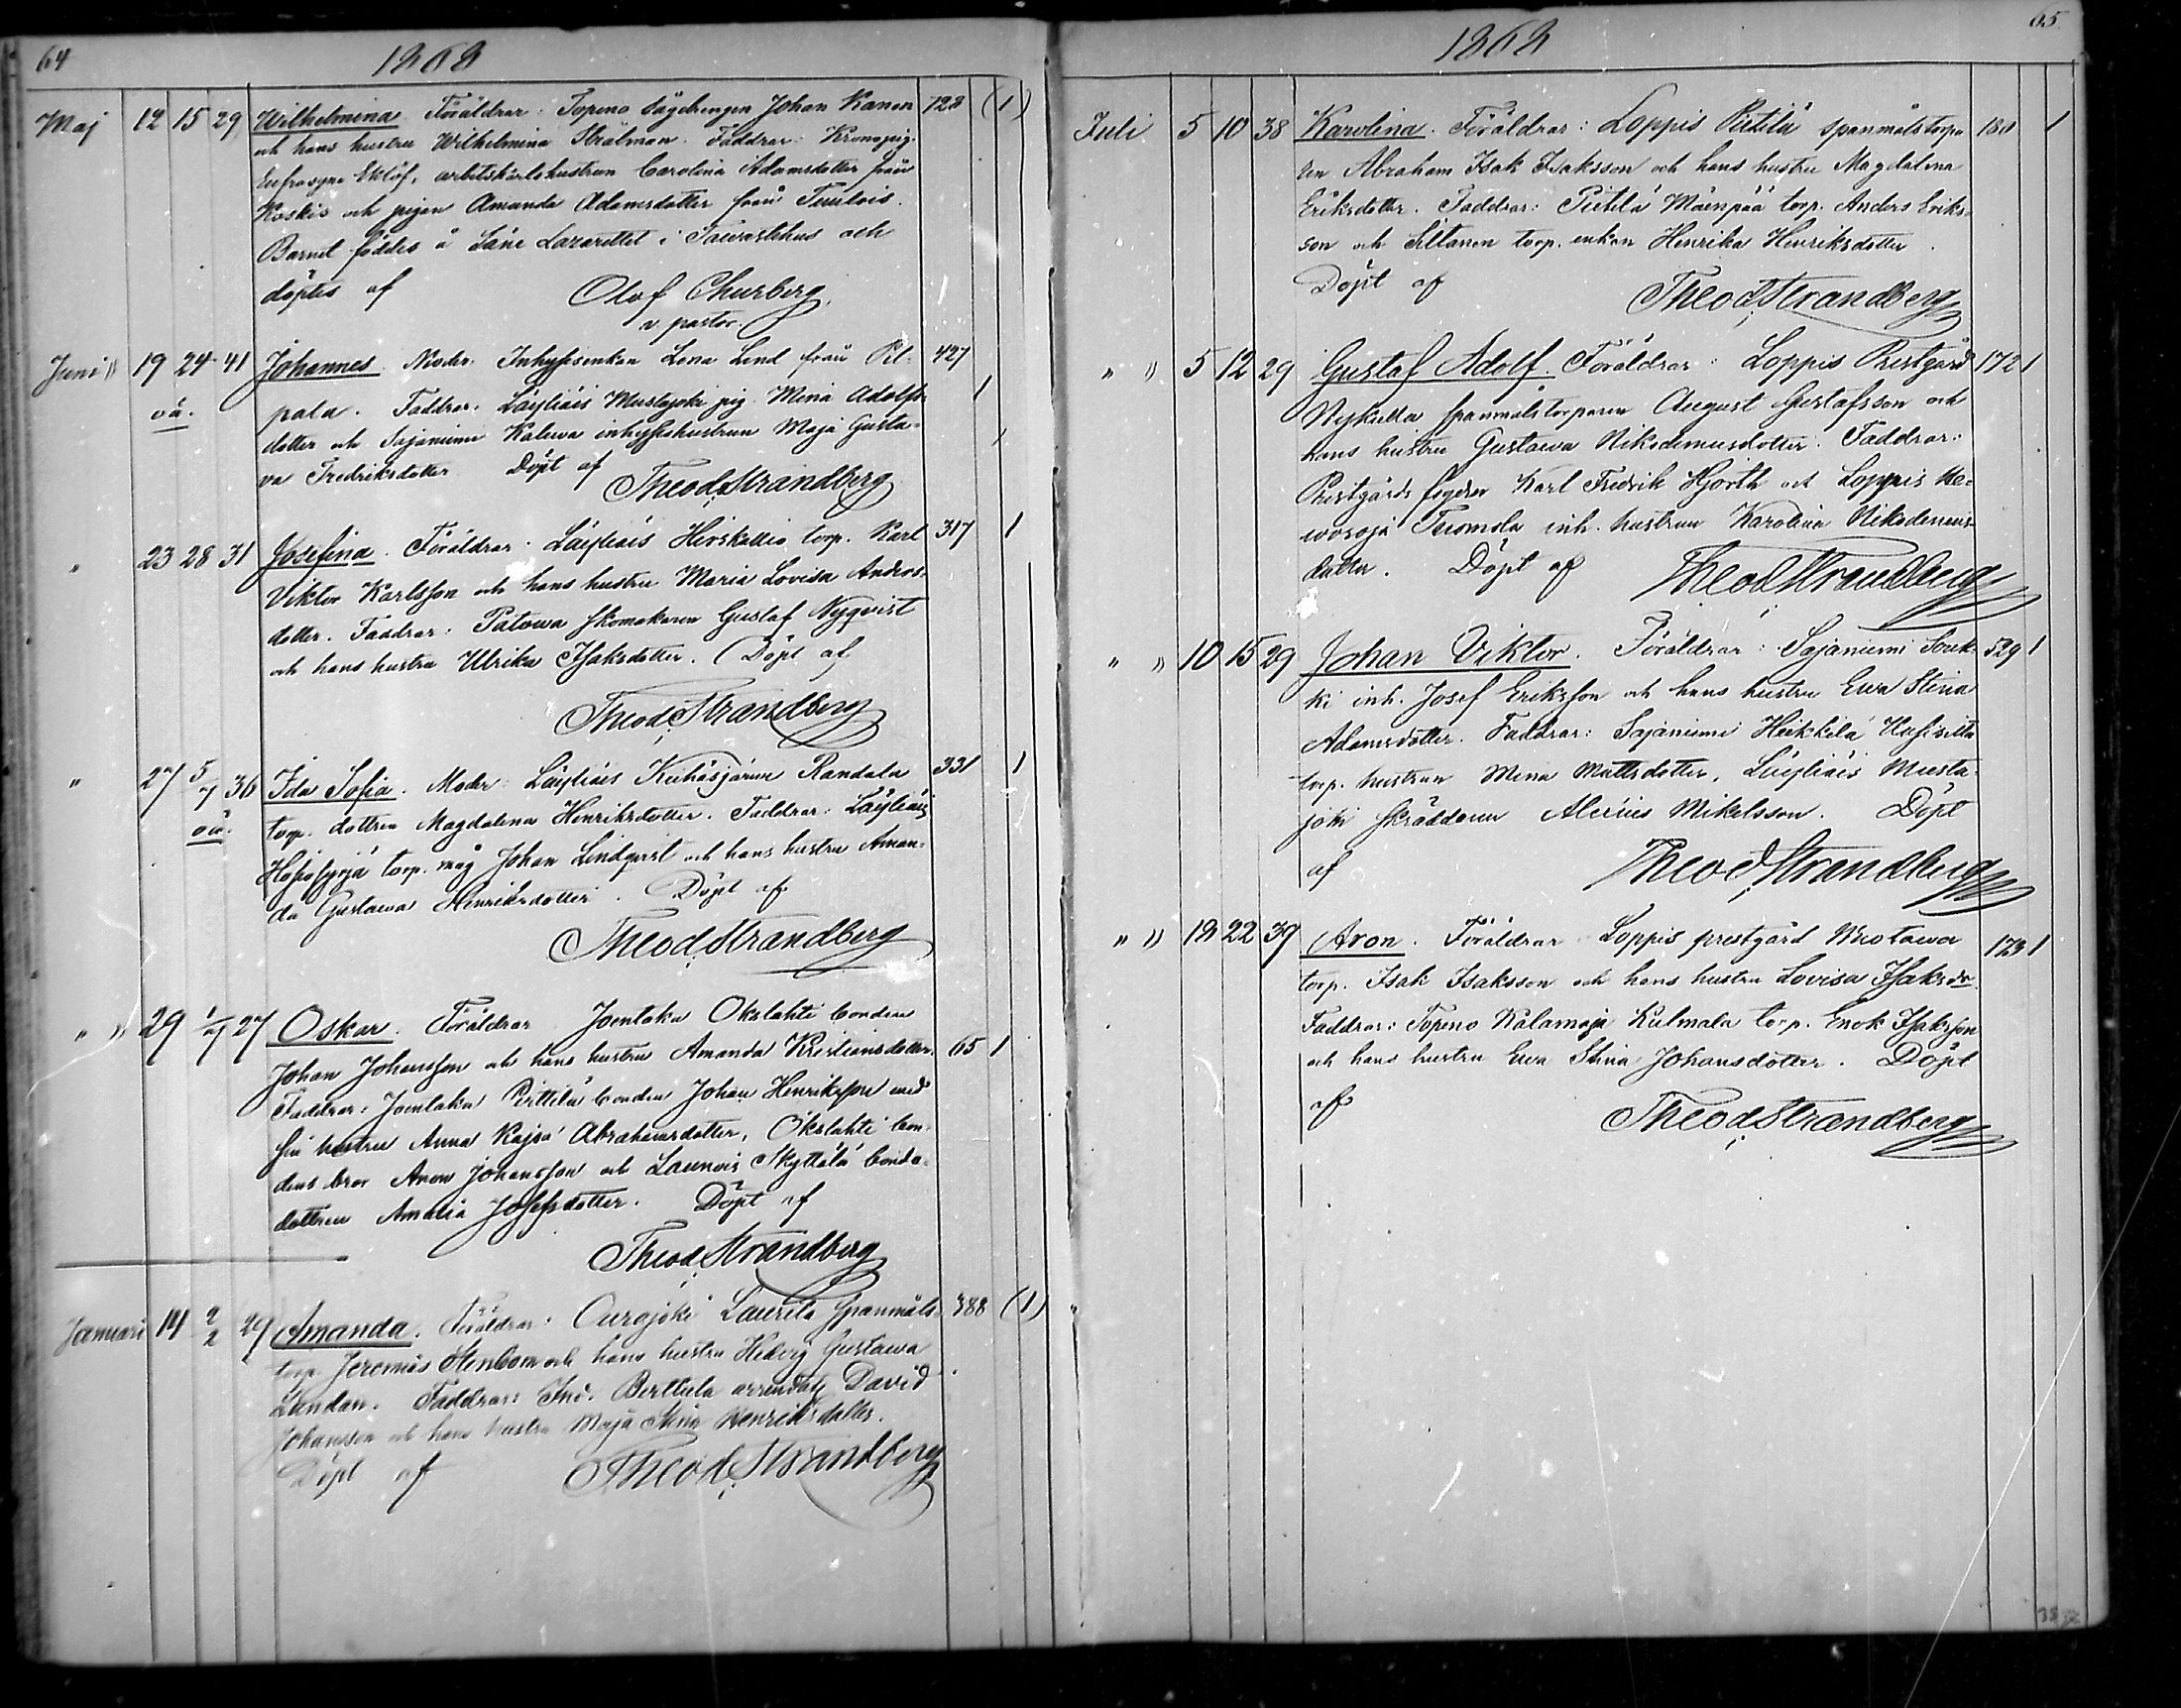 64
1868
Maj 12 15 29 Wilhelmina Föräldrar: Topeno Sågdrengen Johan Kanen 728 (1)
och hans hustru Wilhelmina Strålman. Faddrar: Kronopig.
Eufrosyne Eklöf, arbetskarlshustrun Carolina Adamsdotter från
Koskis och pigan Amanda Adamsdotter från Teuvlois.
Barnet föddes å Läne Lazarettet i Tawastehus och
döptes af Olof Churberg
v pastor.
Juni " 19 24 41 Johannes. Moder: Inhysesenkan Lena Lind från Pil- 427
oä. pala. Faddrar: Läyliäis Mustajoki pig. Mina Adolfs- 1
dotter och Sajaniemi Kaleva inhyseshustrun Maja Gusta- 1
va Fredriksdotter. Döpt af Theod. Strandberg
" 23 28 31 Josefina. Föräldrar: Läyliäis Hirskallio torp. Karl 317 1
Viktor Karlsson och hans hustru Maria Lovisa Anders-
dotter. Faddrar: Patowa skomakaren Gustaf Nyqvist
och hans hustru Ulrika Isaksdotter. Döpt af
Theod. Strandberg
" 27 5/7 36 Ida Sofia. Moder: Läyliäis Keihäsjärwi Randala 331 1
oä. torp. dottren Magdalena Henriksdotter. Faddrar: Läyliäis
torp. måg Johan Lindqvist och hans hustru Aman-
da Gustawa Henriksdotter. Döpt af
Theod. Strandberg
" " 29 1/7 27 Oskar. Föräldrar Joentaka Okslahti bonden
Johan Johansson och hans hustru Amanda Kristiansdotter. 65 1
Faddrar: Joentaka Pirttilä bonden Johan Henriksson med
sin hustru Anna Kajsa Abrahamsdotter, Okslahti bon-
dens bror Aron Johansson och Launois Skyttälä bonde-
dottren Amalia Josefsdotter. Döpt af
Theod. Strandberg
Januari 14 2/2 29 Amanda. Föräldrar: Ourajoki Laurila spanmåls- 388 (1)
torp. Jeremias Stenbom och hans hustru Hedvig Gustawa
Lundan. Faddrar: Ind. Berttula arrendat. David
Johansson och hans hustru Maja Stina Henriksdotter.
Döpt af Theod. Strandberg
65
1868
Juli 5 10 38 Karolina. Föräldrar: Loppis Pietilä spanmålstorpa- 180 1
ren Abraham Isak Isaksson och hans hustru Magdalena
Eriksdotter. Faddrar: Pietilä Mäenpää torp. Anders Eriks-
son och Siltanen torp. enkan Henrika Henriksdotter.
Döpt af Theod. Strandberg
" " 5 12 29 Gustaf Adolf. Föräldrar: Loppis Prestgård 172 1
Nykulla spanmålstorparen August Gustafsson och
hans hustru Gustawa Nikodemusdotter. Faddrar:
Prestgårds fogden Karl Fredrik Hjorth och Loppis He-
wosoja Tuomola inh. hustrun Karolina Nikodemus-
dotter. Döpt af Theod. Strandberg
" " 10 15 29 Johan Viktor. Föräldrar: Sajaniemi Souk- 529 1
ki inh. Josef Eriksson och hans hustru Ewa Stina
Adamsdotter. Faddrar: Sajaniemi Heikkilä Uusisilta
torp. hustrun Mina Mattsdotter, Läyliäis Musta-
joki skräddaren Alexius Mikelsson. Döpt
af Theod. Strandberg
" " 18 22 37 Aron. Föräldrar Loppis prestgård 173 1
torp. Isak Isaksson och hans hustru Lovisa Isaksdr.
Faddrar: Topeno Kalamaja Kulmala torp. Enok Isaksson
och hans hustru Ewa Stina Johansdotter. Döpt
af Theod. Strandberg